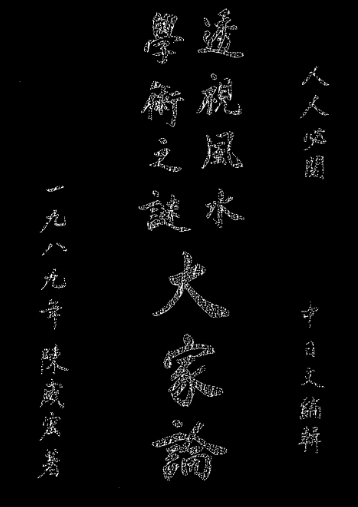 人人必閱
中日文編輯
透視風水
學術之謎
大家論
一九八九年 陳威宏著